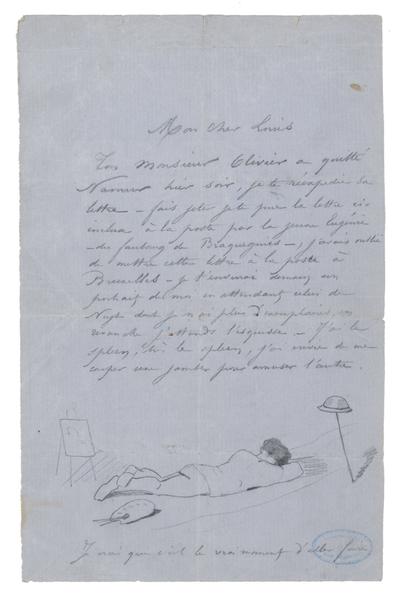 Mon cher Louis
Ton Monsieur Olivier a quitté
Namur hier soir, je te réexpédie sa
lettre — fais jeter je te prie la lettre ci
inclue à la poste par la jeune Eugénie
— du faubourg de — j'avais oublié
de mettre cette lettre à la poste à
Bruxelles — je t'enverrai demain un
portrait de moi en attendant celui de
dont je n'ai plus d'exemplaires, en
revanche j'attends l'esquisse — J'ai le
spleen, le spleen, j'ai envie de me
couper une jambe pour amuser l'autre.
que c'est le vrai moment d'aller